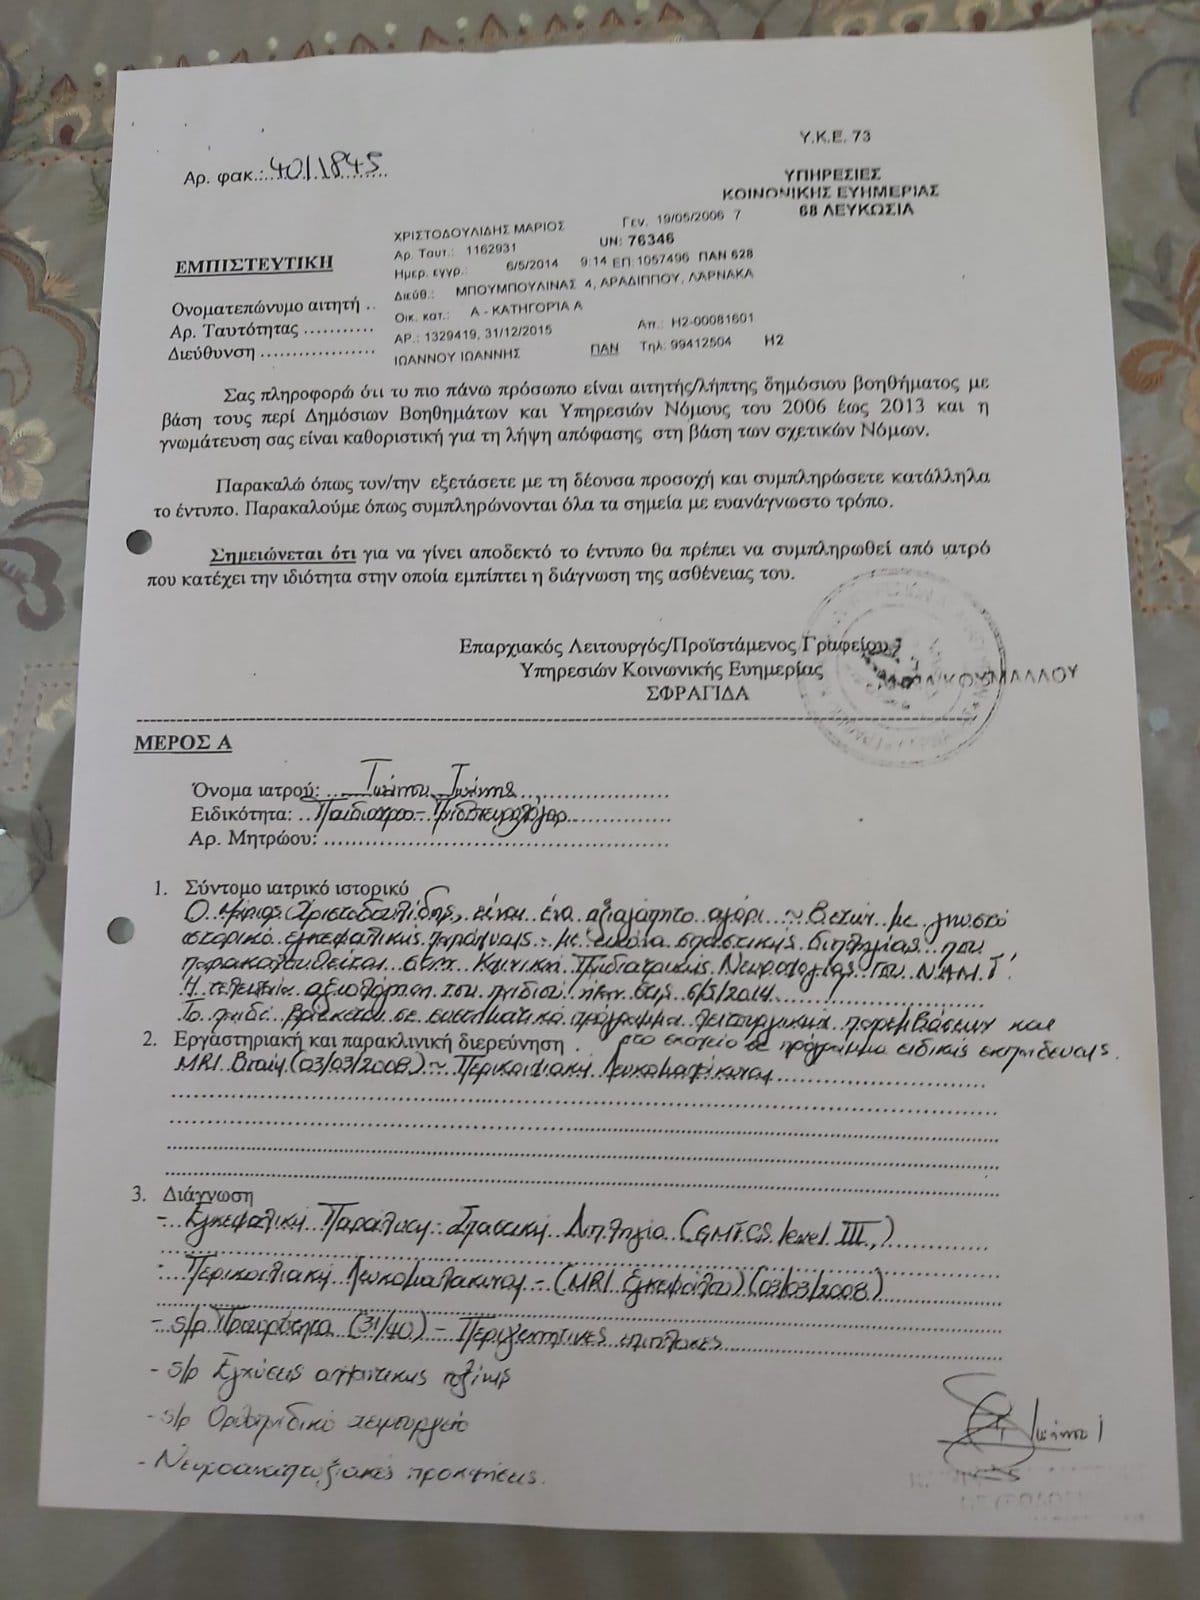 Υ.Κ.Ε. 73
Αρ. φακ.: 40/1845
ΥΠΗΡΕΣΙΕΣ
ΚΟΙΝΩΝΙΚΗΣ ΕΥΗΜΕΡΙΑΣ
68 ΛΕΥΚΩΣΙΑ
ΕΜΠΙΣΤΕΥΤΙΚΗ
ΧΡΙΣΤΟΔΟΥΛΙΔΗΣ ΜΑΡΙΟΣ Γεν. 19/05/2006 7
Αρ. Ταυτ.: 1162931 UN: 76346
Ημερ. εγγρ.: 6/5/2014 9:14 ΕΠ: 1057496 ΠΑΝ 628
Διεύθ.: ΜΠΟΥΜΠΟΥΛΙΝΑΣ 4, ΑΡΑΔΙΠΠΟΥ, ΛΑΡΝΑΚΑ
Οικ. κατ.: Α - ΚΑΤΗΓΟΡΙΑ Α
ΑΡ.: 1329419, 31/12/2015 Απ.: Η2-00081601
ΙΩΑΝΝΟΥ ΙΩΑΝΝΗΣ ΠΑΝ Τηλ: 99412504 Η2
Ονοματεπώνυμο αιτητή ..
Αρ. Ταυτότητας ...........
Διεύθυνση ..................
Σας πληροφορώ ότι το πιο πάνω πρόσωπο είναι αιτητής/λήπτης δημόσιου βοηθήματος με
βάση τους περί Δημόσιων Βοηθημάτων και Υπηρεσιών Νόμους του 2006 έως 2013 και η
γνωμάτευση σας είναι καθοριστική για τη λήψη απόφασης στη βάση των σχετικών Νόμων.
Παρακαλώ όπως τον/την εξετάσετε με τη δέουσα προσοχή και συμπληρώσετε κατάλληλα
το έντυπο. Παρακαλούμε όπως συμπληρώνονται όλα τα σημεία με ευανάγνωστο τρόπο.
Σημειώνεται ότι για να γίνει αποδεκτό το έντυπο θα πρέπει να συμπληρωθεί από ιατρό
που κατέχει την ιδιότητα στην οποία εμπίπτει η διάγνωση της ασθένειας του.
Επαρχιακός Λειτουργός/Προϊστάμενος Γραφείου
Υπηρεσιών Κοινωνικής Ευημερίας
ΣΦΡΑΓΙΔΑ
ΚΟΥΜΑΛΛΟΥ
ΜΕΡΟΣ Α
Όνομα ιατρού: Ιωάννου Ιωάννης
Ειδικότητα: Παιδίατρος - Παιδονευρολόγος
Αρ. Μητρώου:
1. Σύντομο ιατρικό ιστορικό
Ο Μάριος Χριστοδουλίδης, είναι ένα αξιαγάπητο αγόρι ~ 8 ετών με γνωστό
ιστορικό εγκεφαλικής παράλυσης - με εικόνα σπαστικής διπληγίας που
παρακολουθείται στην Κλινική Παιδιατρικής Νευρολογίας του ΝΑΜ ΙΙΙ
Η τελευταία αξιολόγηση του παιδιού ήταν στις 6/5/2014
Το παιδί βρίσκεται σε συστηματικό πρόγραμμα λειτουργικών παρεμβάσεων και
στο σχολείο σε πρόγραμμα ειδικής εκπαίδευσης.
2. Εργαστηριακή και παρακλινική διερεύνηση
MRI Brain (03/03/2008) ~ Περικοιλιακή Λευκομαλάκυνση
3. Διάγνωση
- Εγκεφαλική Παράλυση: Σπαστική Διπληγία (GMFCS level III,)
- Περικοιλιακή Λευκομαλάκυνση - (MRI Εγκεφάλου) (03/03/2008)
- s/p Προωρότητα (31/40) - Περιγεννητικές επιπλοκές
- s/p Εγχύσεις αλλαντικής τοξίνης
- s/p Ορθοπεδικό χειρουργείο
- Νευροαναπτυξιακές προκλήσεις.
Ιωάννου Ι